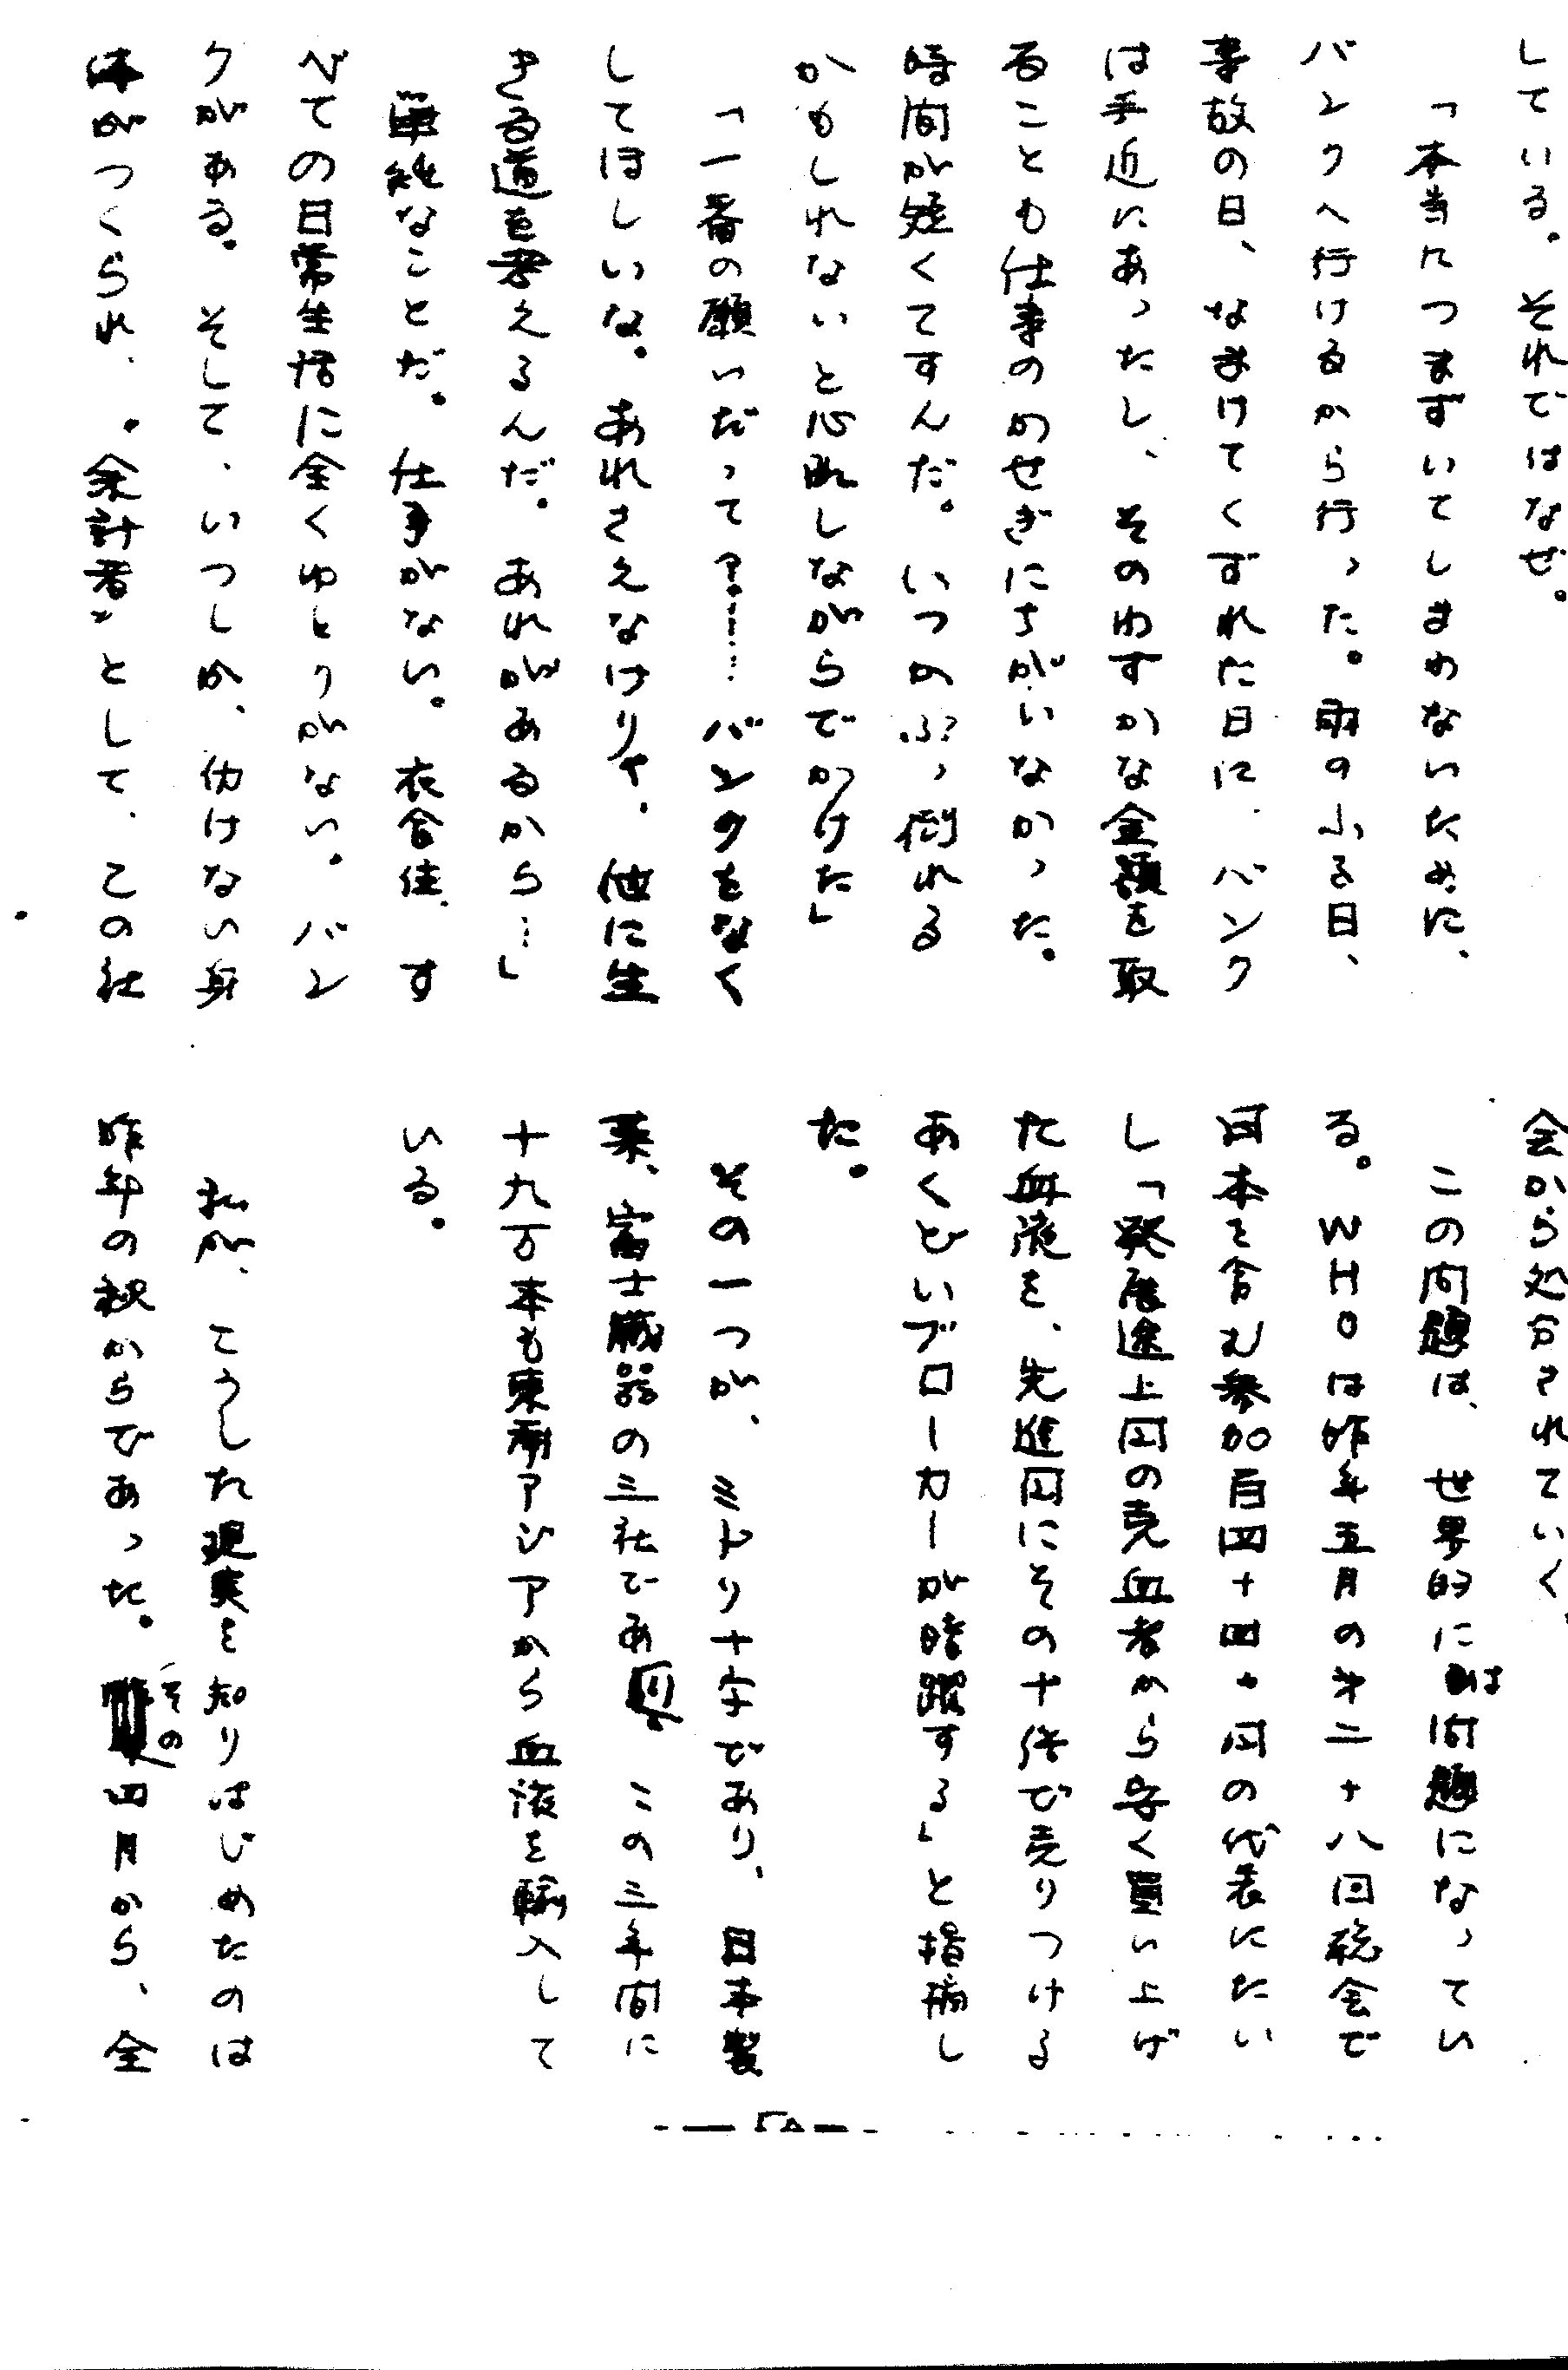 している。それではなぜ。
「本当につまずいてしまわないために、
バンクへ行けるから行った。雨のふる日、
事故の日、なまけてくずれた日に、バンク
は手近にあったし、そのわずかな金額を取
ることも仕事のかせぎにちがいなかった。
時間が短くてすんだ。いつかぶっ倒れる
かもしれないと心配しながらでかけた」
「一番の願いだって？……バンクをなく
してほしいな。あれさえなけりゃ、他に生
きる道を考えるんだ。あれがあるから…」
単純なことだ。仕事がない。衣食住、す
べての日常生活に全くゆとりがない。バン
クがある。そして、いつしか、働けない身
体がつくられ、〝余計者〟として、この社
会から処分されていく。
この問題は、世界的には問題になってい
る。WHOは昨年五月の第二十八回総会で
日本を含む参加百四十四ヶ国の代表にたい
し「発展途上国の売血者から安く買い上げ
た血液を、先進国にその十倍で売りつける
あくどいブローカーが暗躍する」と指摘し
た。
その一つが、ミドリ十字であり、日本製
薬、富士臓器の三社であり、この三年間に
十九万本も東南アジアから血液を輸入して
いる。
私が、こうした現実を知りはじめたのは
昨年の秋からであった。その四月から、全